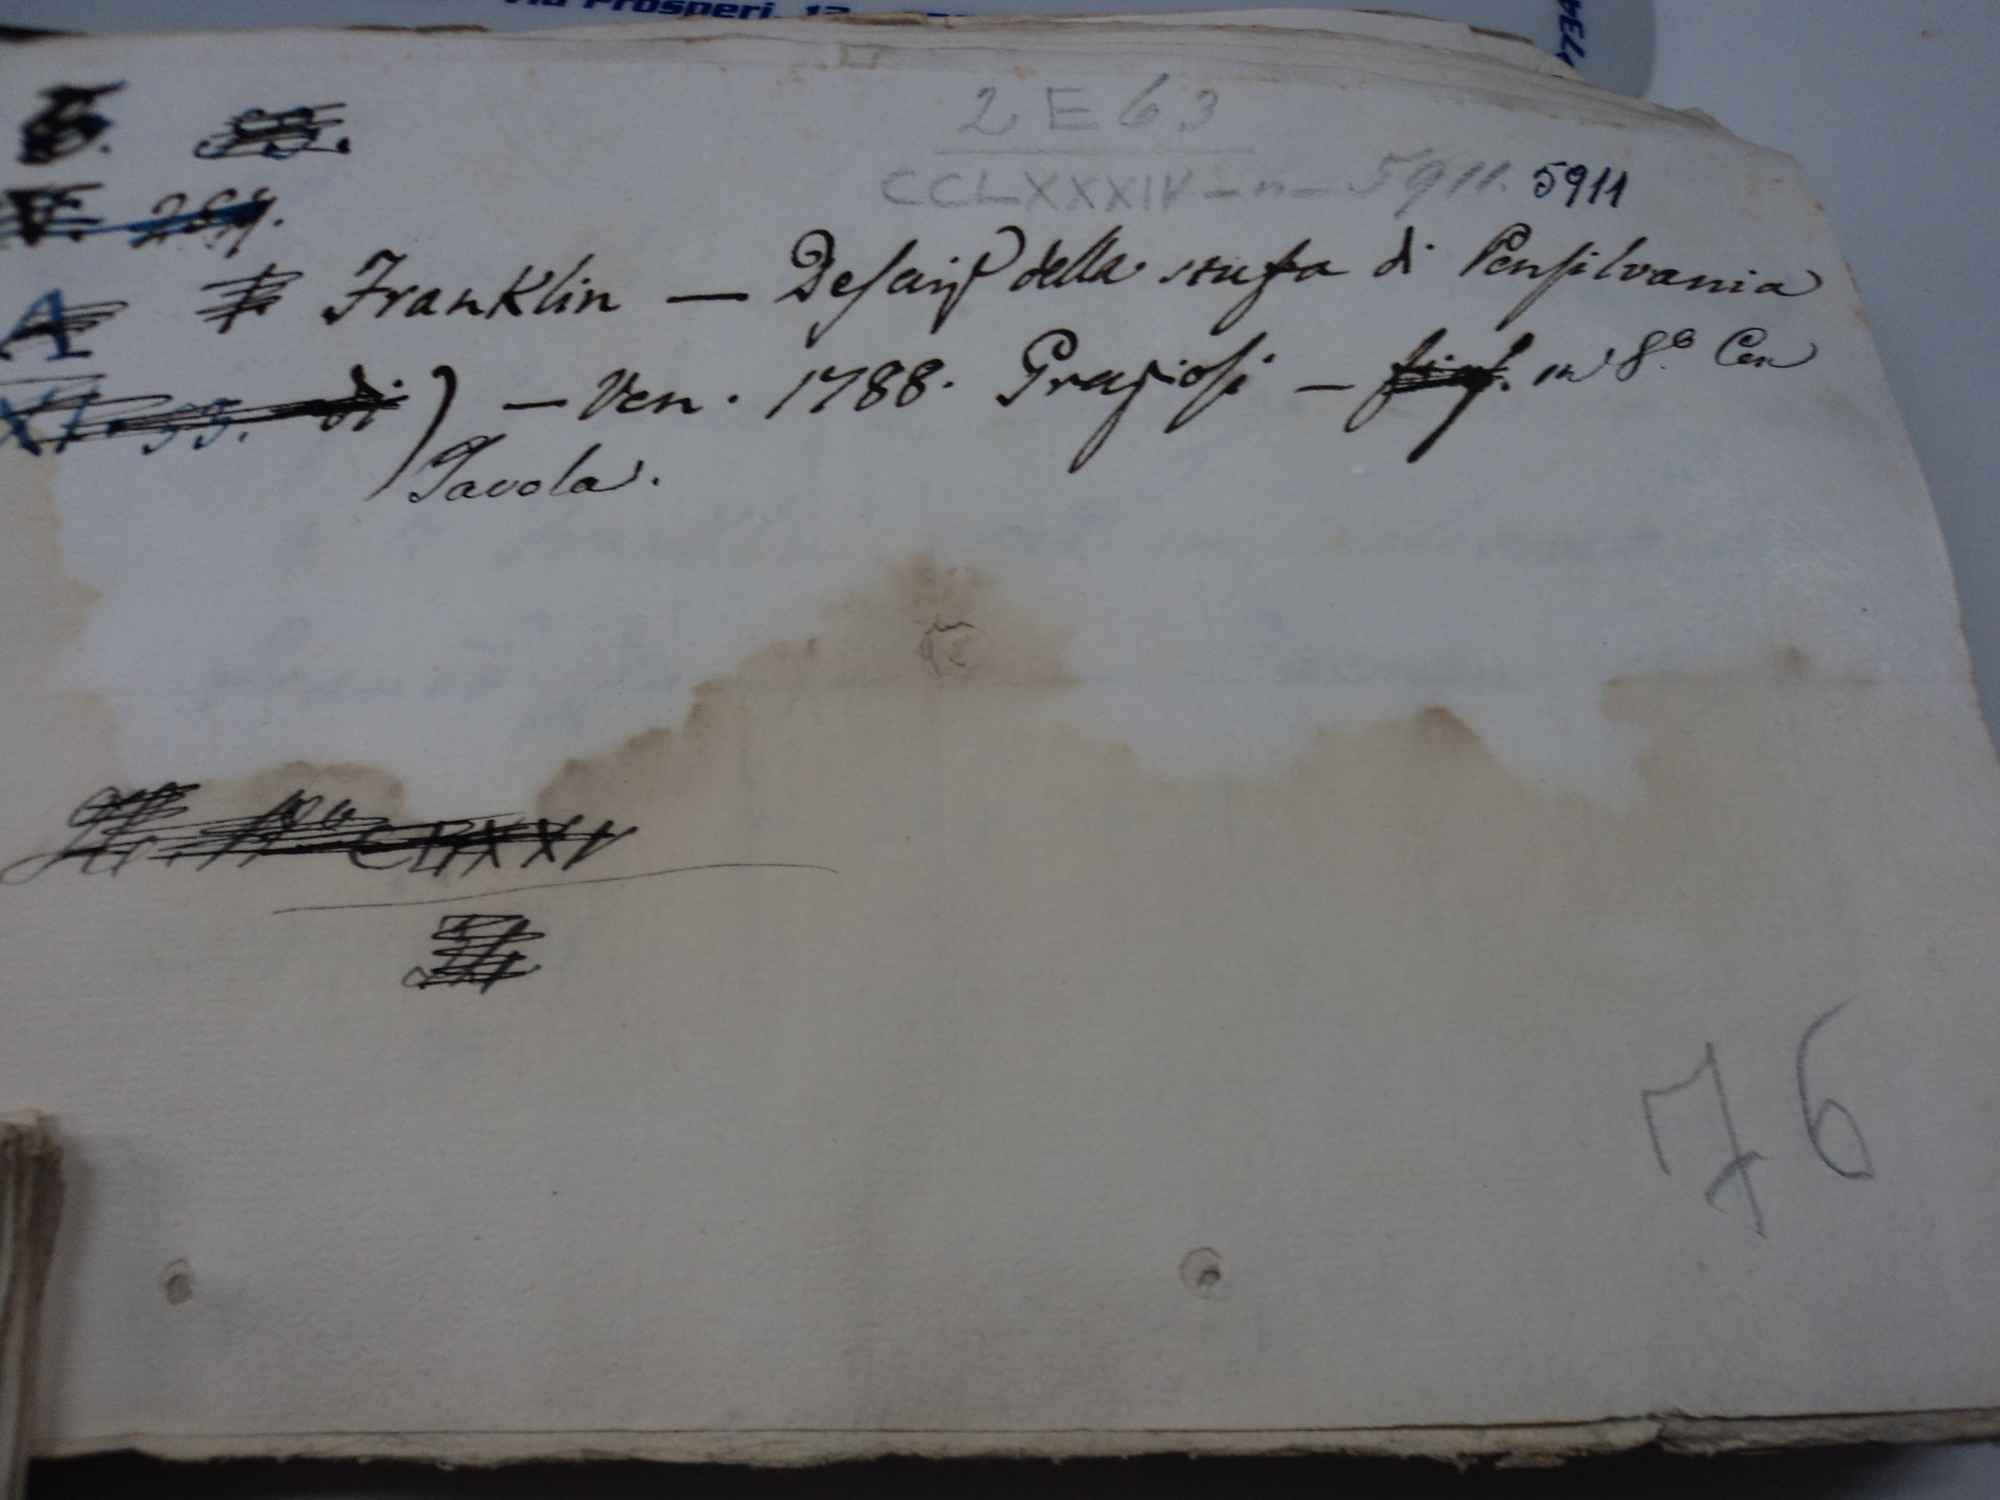 Via Prosperi, 12
2 E 63
CCLXXXIV - n - 5911. 5911
Franklin — Descriz della stufa di Pensilvania
XI. 55. di) — Ven. 1788. Graziosi — fig. in 8.º Con
Tavola.
CLXXXV
76